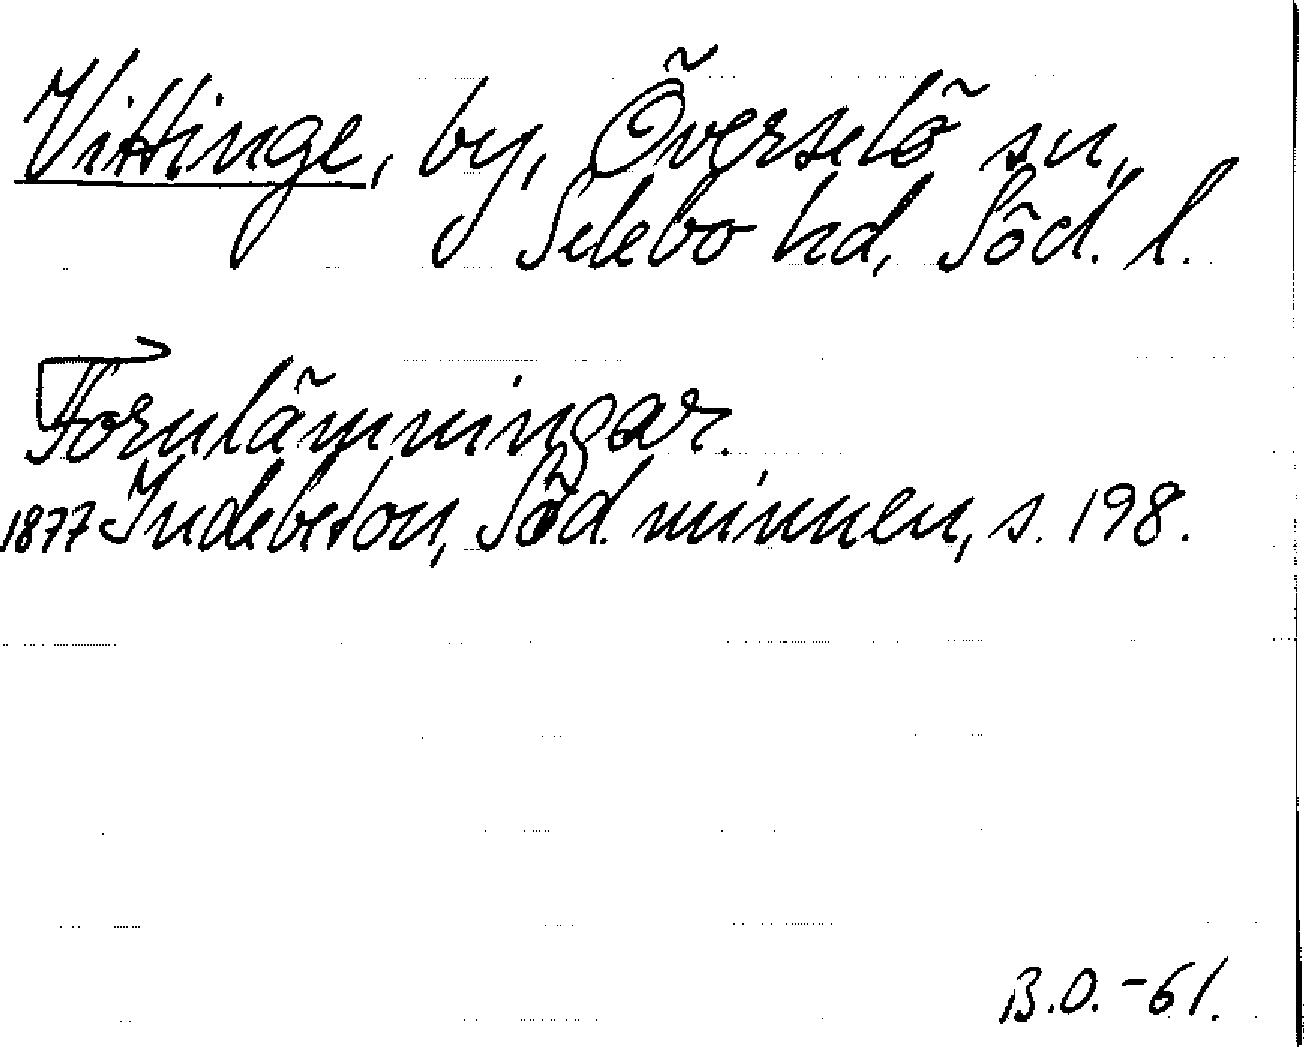 Vittinge, by, Överselö sn,
Selebo hd, Söd. l.
Fornlämningar.
1877 Indebetou, Söd. minnen, s. 198.
B.O.-61.